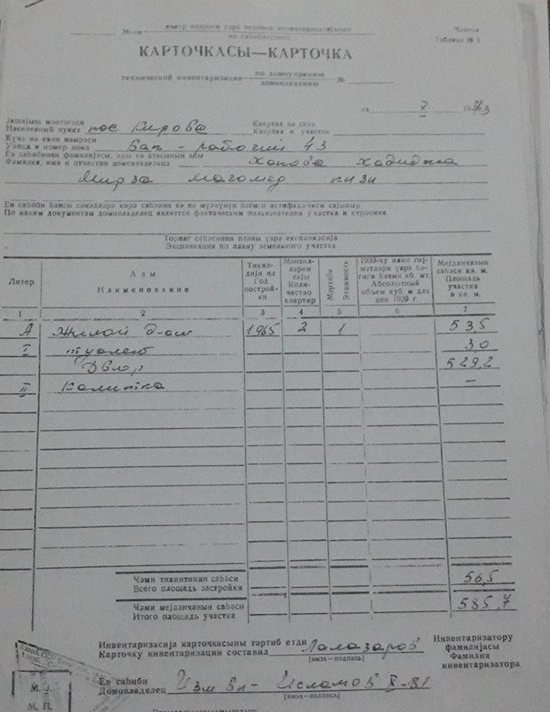 КАРТОЧКАСЫ—КАРТОЧКА
технической инвентаризации по домоуправлению домовладению №
Јашајыш мәнтәгәси
Населенный пункт пос Кирова
Квартал вә саһә
Квартал и участок
Күчә вә евин нөмрәси
Улица и номер дома Бак - рабочий 43
Ев саһибинин фамилијасы, ады вә атасынын ады
Фамилия, имя и отчество домовладельца Хадиджа
Мирза Магомед кизи
Ев саһиби һансы сәнәдләрә көрә
По каким документам домовладелец является фактическим пользователем участка и строения
Торпаг саһәсинин планы үзрә експликасија
Экспликация по плану земельного участка
Литер
Ады
Наименование
Год постройки
Количество квартир
Мәртәбә
Этажность
Абсолютный объем куб. м
Площадь участка в кв. м.
1 2 3 4 5 6 7
А Жилой д-ом 1965 2 1 53,5
I туалет 3,0
Двор 529,2
II Калитка —
Чәми тикинтинин саһәси
Всего площадь застройки 56,5
Чәми мејданчанын саһәси
Итого площадь участка 585,7
Инвентаризасија карточкасыны тәртиб етди
Карточку инвентаризации составил Лалазаров
(имза—подпись)
Инвентаризатору фамилијасы
Фамилия инвентаризатора
Ев саһиби
Домовладелец
(имза—подпись)
М. П.